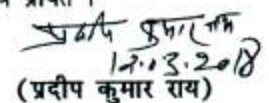 प्रदीप कुमार राय
12.03.2018
(प्रदीप कुमार राय)